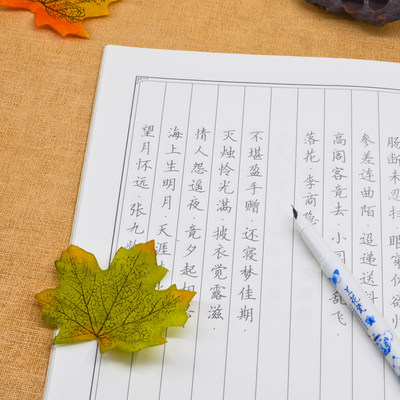 望月怀远·张九
海上生明月·天涯
情人怨遥夜·竟夕起相
灭烛怜光满·披衣觉露滋·
不堪盈手赠·还寝梦佳期·
落花·李商隐
高阁客竟去·小乱飞·
参差连曲陌·迢递送斜
肠断未忍扫·眼穿仍欲归